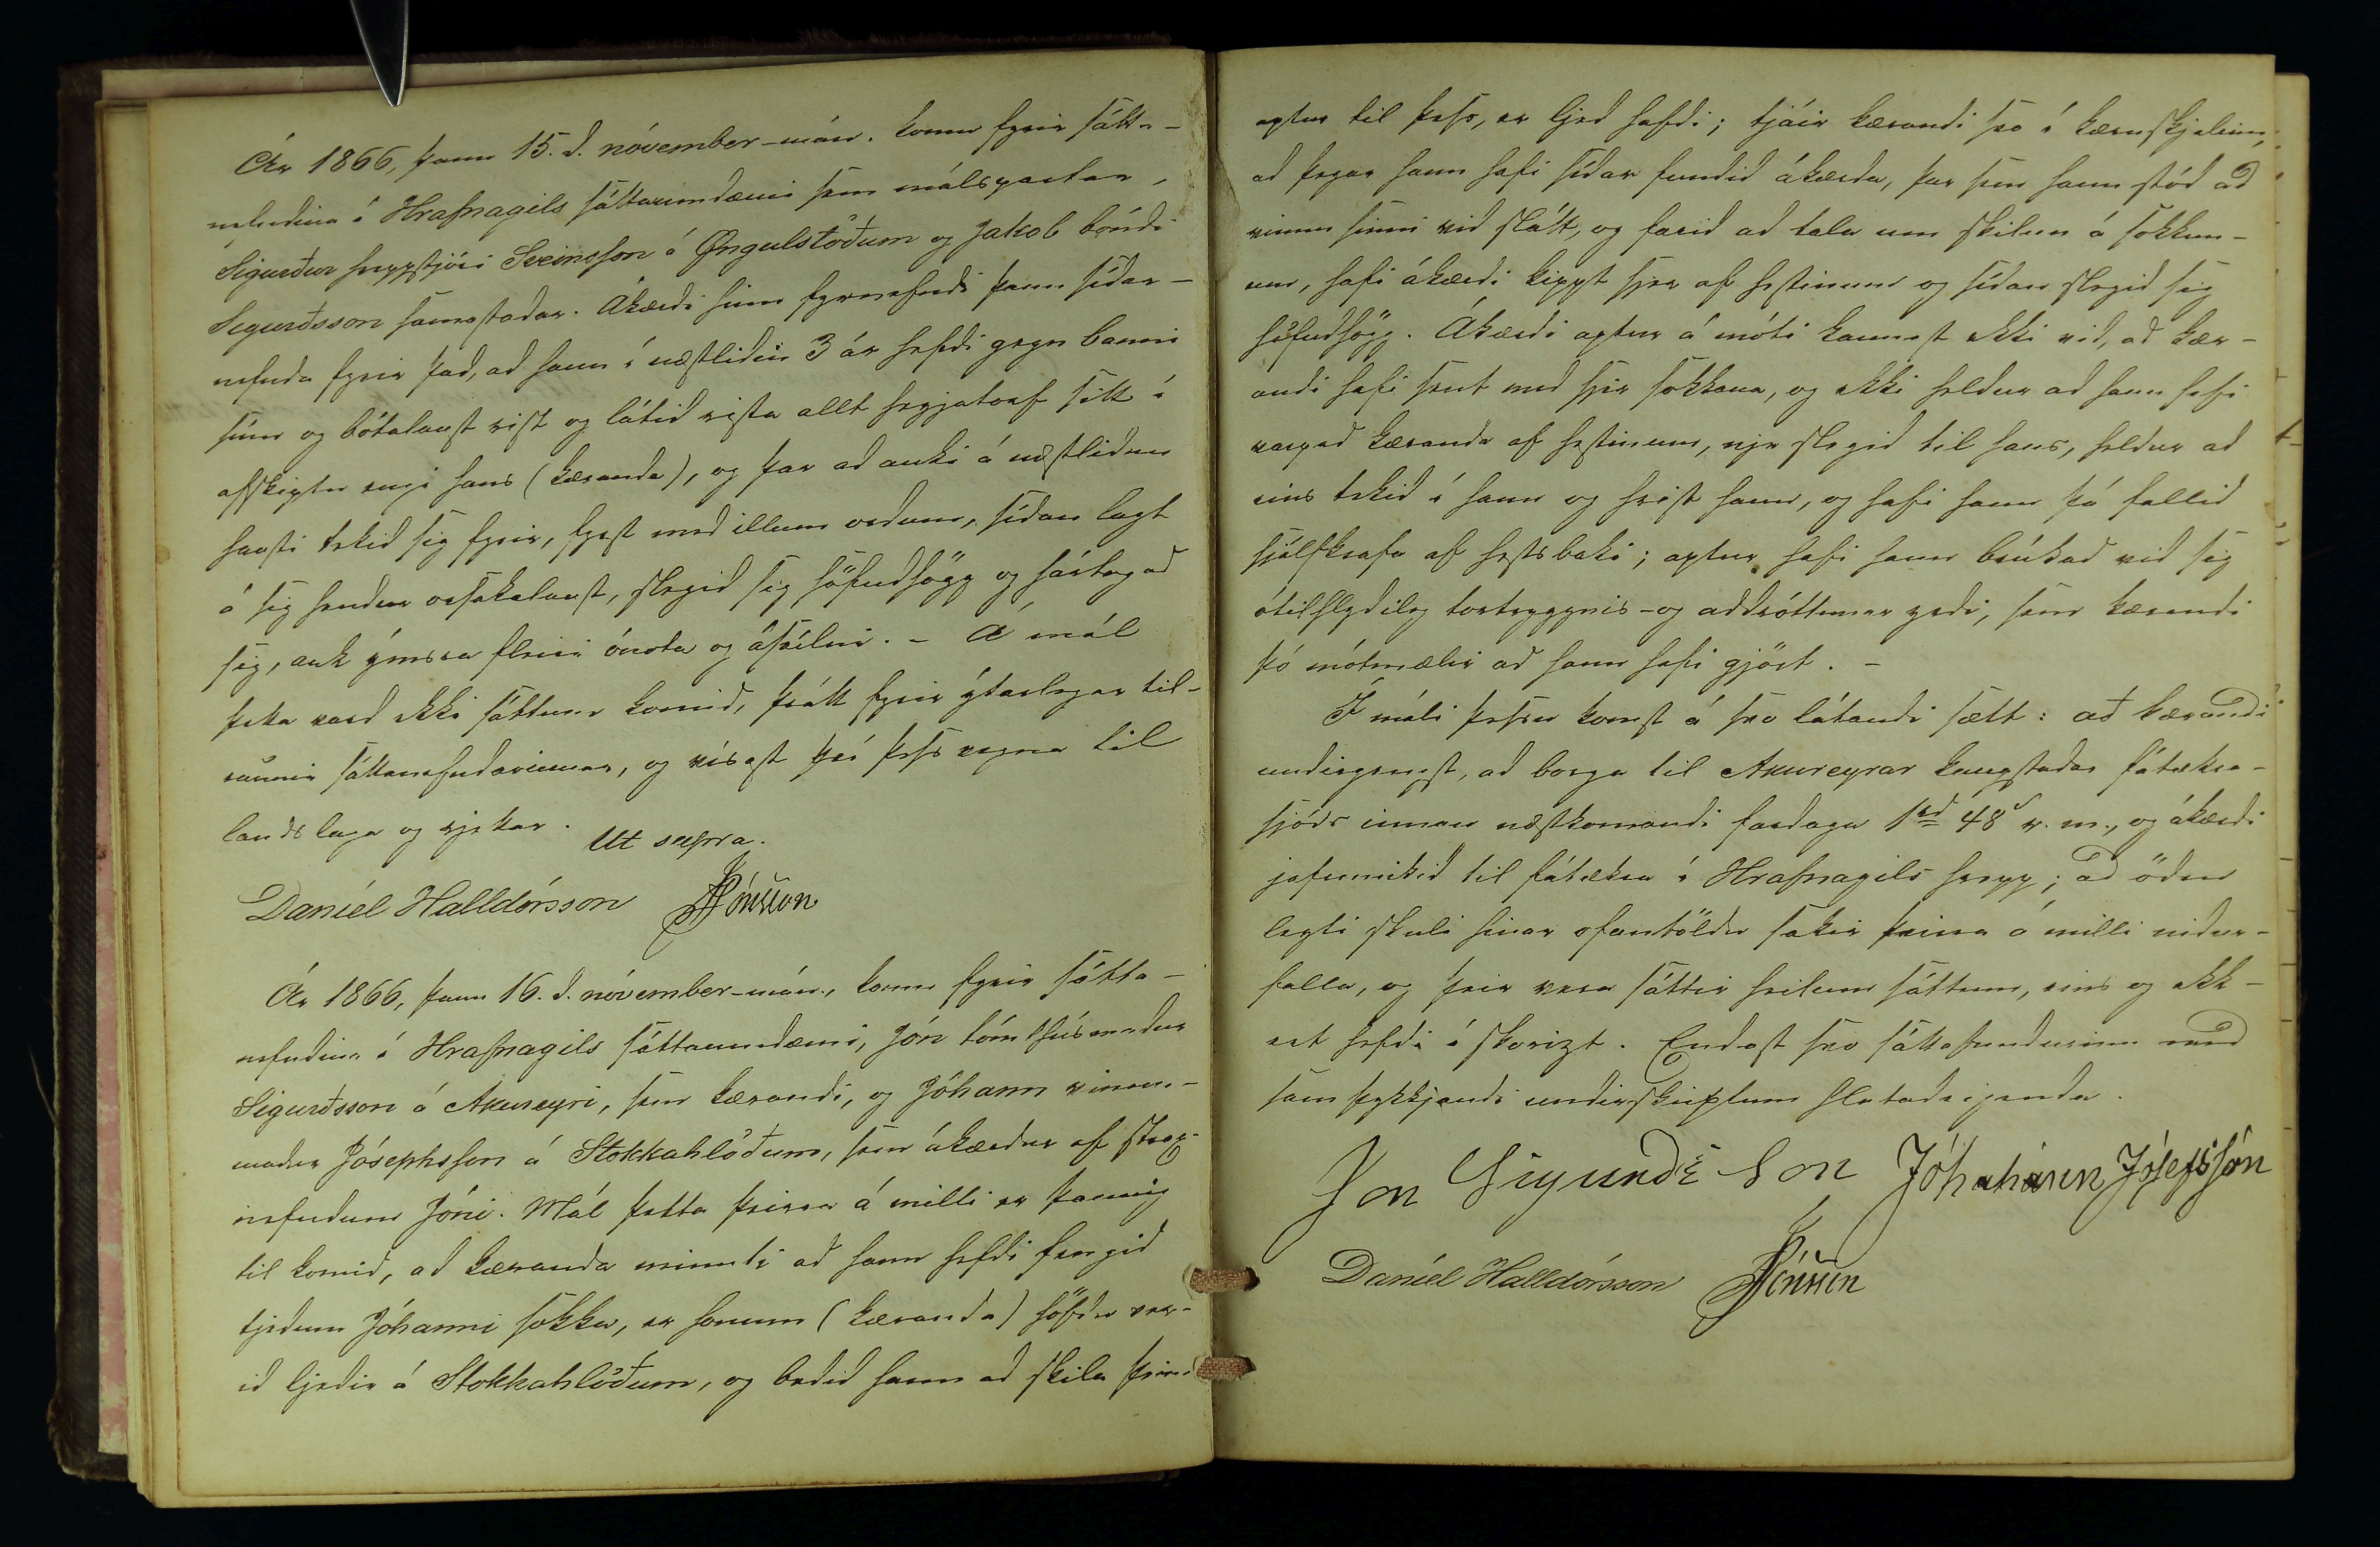 Ár 1866, þann 15. d. nóvember-mán. komu fyrir sátta-
nefndina í Hrafnagils sáttaumdæmi sem málspartar,
Sigurður hreppstjóri Sveinsson á Öngulstöðum og Jakob bóndi
Sigurðsson samastaðar. Ákærdi hinn fyrrnefndi þann síðar-
nefnda fyrir það, að hann í næstliðin 3 ár hefði gegn banni
sínu og bótalaust rist og látið rista allt heyjatorf sitt í
afskiptu engi hans (kæranda), og þar að auki á næstliðnu
hausti tekið sig fyrir, fyrst með illum orðum, síðan lagt
á sig hendur orsakalaust, slegið sig höfuðhögg og hártogað
sig, auk ýmissa fleiri ónota og áreitni. - Á mál
þetta varð ekki sáttum komið, þrátt fyrir ýtarlegar til-
raunir sáttanefndarinnar, og vísast því þess vegna til
landslaga og rjettar.
Ut supra.
Daníel Halldórsson JJónsson
Ár 1866, þann 16. d. nóvember-mán., komu fyrir sátta-
nefndina í Hrafnagils sáttaumdæmi, Jón tómthúsmaður
Sigurðsson á Akureyri, sem kærandi, og Jóhann vinnu-
maður Jósephsson á Stokkahlöðum, sem ákærður af strax-
nefndum Jóni. Mál þetta þeirra á milli er þannig
til komið, að kæranda minnti að hann hefði fengið
tjeðum Jóhanni sokka, er honum (kæranda) höfðu ver-
ið ljeðir á Stokkahlöðum, og beðið hann að skila þeim
aptur til þess, er ljeð hafði; tjáir kærandi svo í kæruskjalinu,
að þegar hann hafi síðar fundið ákærða, þar sem hann stóð að
vinnu sinni við slátt, og farið að tala um skilun á sokkun-
um, hafi ákærði kippt sjer af hestinum og síðan slegið sig
höfuðhögg. Ákærði aptur á móti kannast ekki við, að kær-
andi hafi sent með sjer sokkana, og ekki heldur að hann hafi
varpað kæranda af hestinum, nje slegið til hans, heldur að
eins tekið í hann og hrist hann, og hafi hann þá fallið
sjálfkrafa af hestsbaki; aptur hafi hann brúkað við sig
ótilhlýðileg tortryggnis- og aðdróttunar yrði, sem kærandi
þó mótmælir að hann hafi gjört. -
Í máli þessu komst á svo látandi sætt: að kærandi
undirgengst, að borga til Akureyrar kaupstaðar fátækra-
sjóðs innan næstkomandi fardaga 1rd 48s r. m., og ákærði
jafnmikið til fátækra í Hrafnagils hrepp; að öðru
leyti skuli hinar ofantöldu sakir þeirra á milli niður-
falla, og þeir vera sáttir heilum sáttum, eins og ekk-
ert hefði í skorizt. Endast svo sáttafundurinn með
samþykkjandi undirskriptum hlutaðeigenda.
Jon Sigurndsson Jóhahánn Jósefssón
Daníel Halldórsson JJónsson